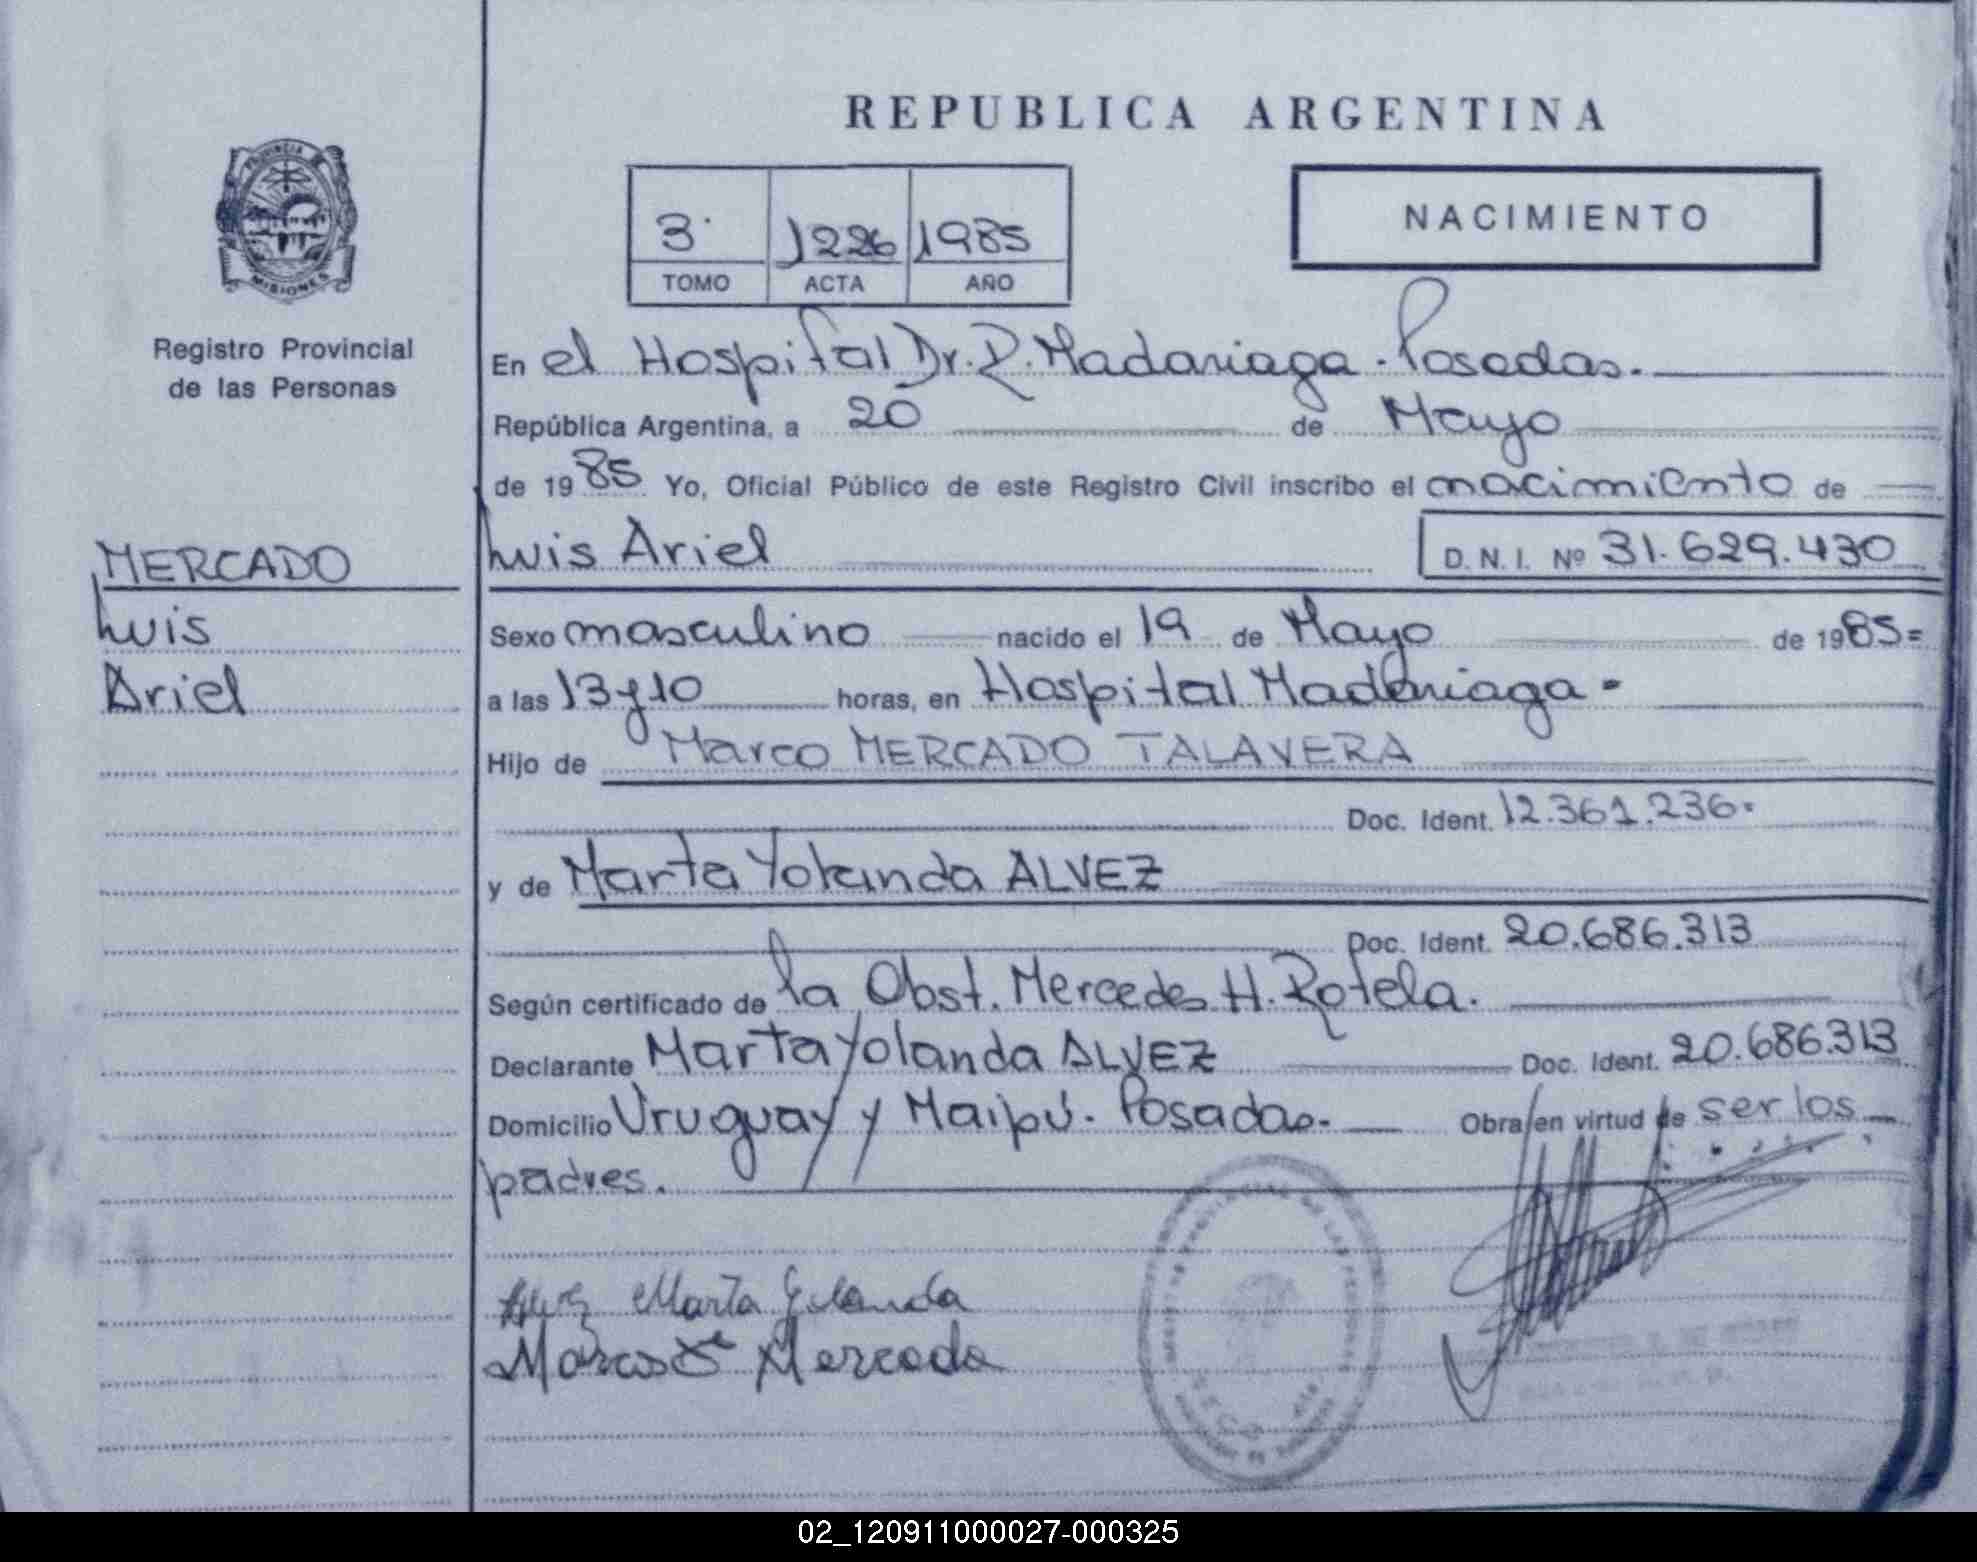 REPUBLICA ARGENTINA
PROVINCIA DE
MISIONES
Registro Provincial
de las Personas
3º 1226 1985
TOMO ACTA AÑO
NACIMIENTO
En el Hospital Dr. R. Madariaga - Posadas.
República Argentina, a 20 de Mayo
de 1985 Yo, Oficial Público de este Registro Civil inscribo el nacimiento de
MERCADO
Luis
Ariel
Luis Ariel D. N. I. Nº 31.629.430
Sexo masculino nacido el 19 de Mayo de 1985=
a las 13 y 10 horas, en Hospital Madariaga -
Hijo de Marco MERCADO TALAVERA
Doc. Ident. 12.361.236.
y de Marta Yolanda ALVEZ
Doc. Ident. 20.686.313
Según certificado de la Obst. Mercedes H. Rotela.
Declarante Marta Yolanda ALVEZ Doc. Ident. 20.686.313
Domicilio Uruguay y Maipú - Posadas. Obra en virtud de ser los
padres.
Marta Yolanda
Mercado
02_120911000027-000325